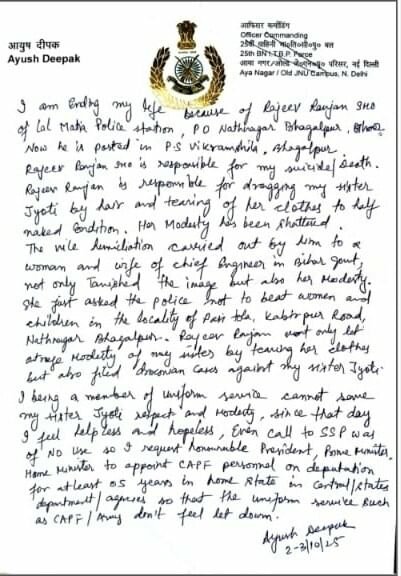 आयुष दीपक
Ayush Deepak
आफिसर कमाँडिंग
Officer Commanding
25th BN I.T.B.P. Force
Aya Nagar / Old JNU Campus, N. Delhi
I am Ending my life because of Rajeev Ranjan SHO
of Lal Matia Police station, P.O Nathnagar Bhagalpur, Bihar
Now he is posted in P.S Vikramshila, Bhagalpur
Rajeev Ranjan SHO is responsible for my suicide/Death.
Rajeev Ranjan is responsible for dragging my sister
Jyoti by hair and tearing of her clothes to half
naked condition. Her Modesty has been shattered.
The vile humiliation carried out by him to a
woman and wife of chief Engineer in Bihar Govt,
not only Tarnished the image but also her Modesty.
She just asked the police not to beat women and
children in the locality of Pasi tola, Kabirpur Road,
Nathnagar Bhagalpur. Rajeev Ranjan not only let
Modesty of my sister by tearing her clothes
but also filed draconian cases against my sister Jyoti.
I being a member of uniform service cannot save
my sister Jyoti respect and Modesty, since that day
I feel helpless and hopeless, Even call to SSP was
of No use so I request honourable President, Prime Minister,
Home Minister to appoint CAPF personnel on deputation
for atleast 05 years in home State in Central/States
department/agencies so that the uniform service such
as CAPF/Army don't feel let down.
Ayush Deepak
2-3/10/25